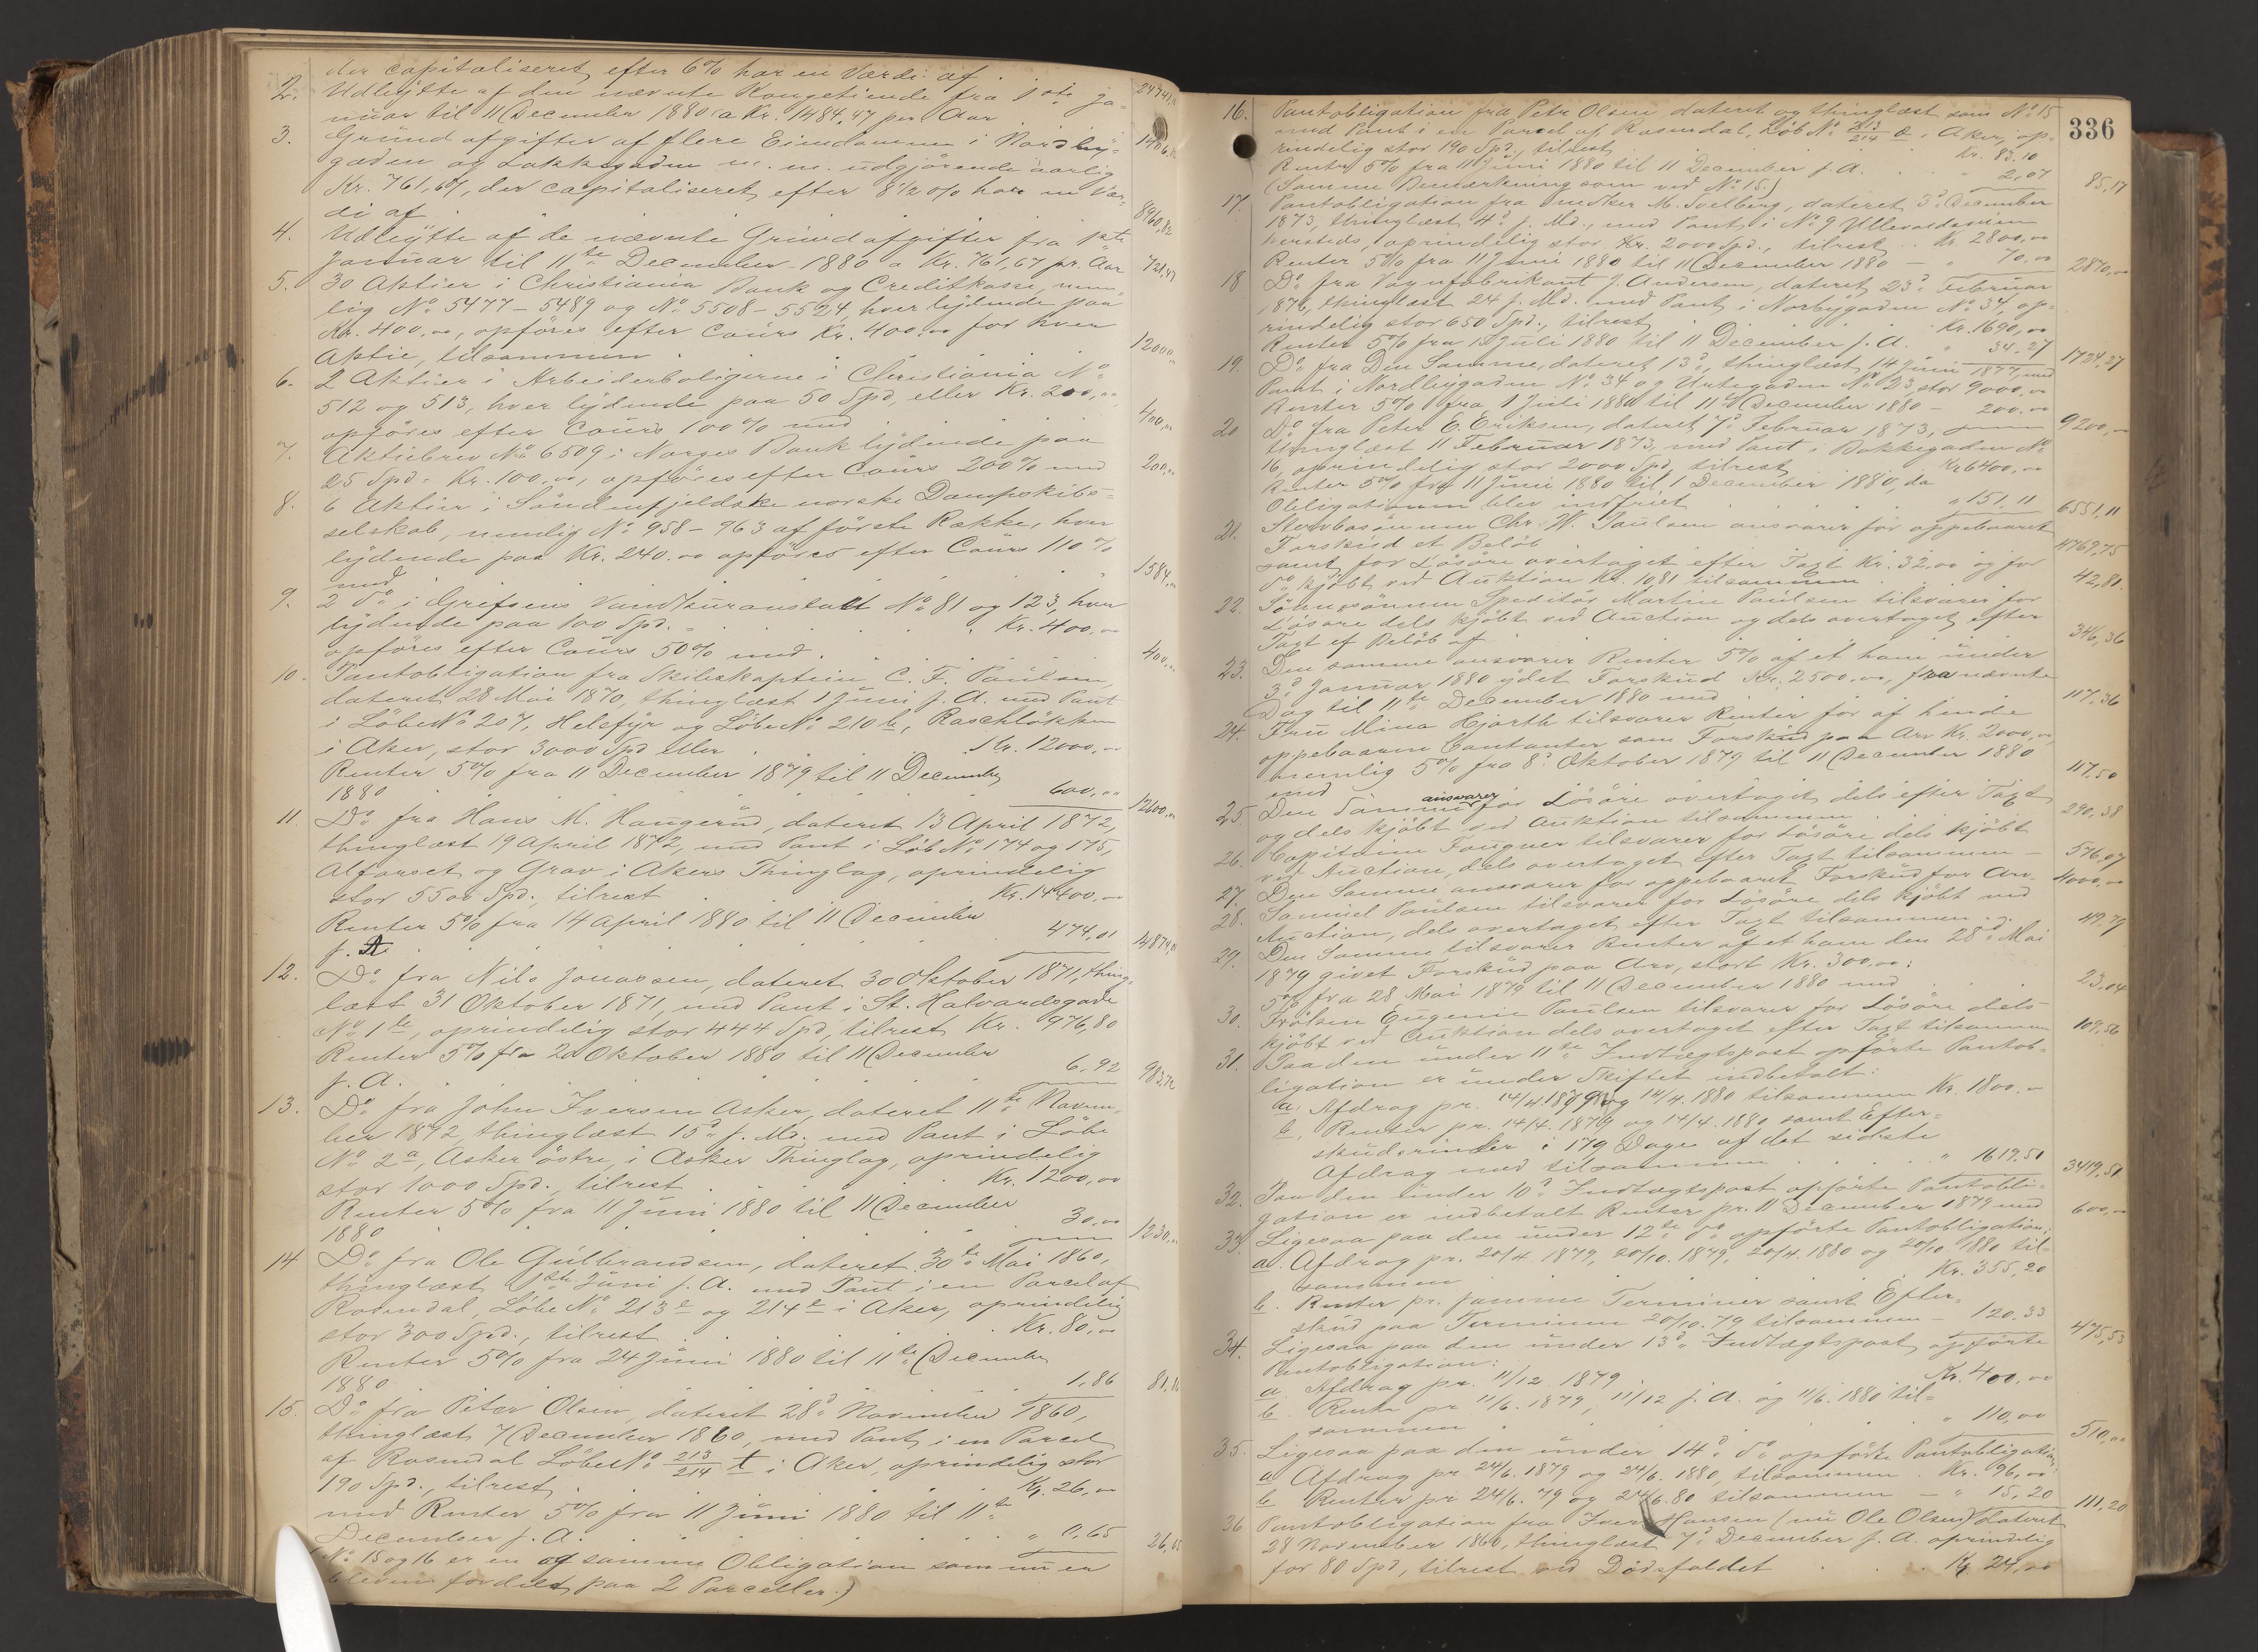 der capitaliseret efter 6% har en Værdi af
24741,
2. Udbytte af den nævnte Kongetiende fra 1ste Ja-
nuar til 11 December 1880 a Kr. 1484,47 per Aar
1406,
3. Grundafgifter af flere Eiendomme i Nordby-
gaden og Lakkegaden m. m. udgjørende aarlig
Kr. 761,67, der capitaliseret efter 8 1/2 % har en Vær-
di af
8960,82
4. Udbytte af de nævnte Grundafgifter fra 1ste
Januar til 11te December 1880 a Kr. 761,67 pr. Aar
721,47
5. 30 Aktier i Christiania Bank og Creditkasse, nem-
lig No 5477-5489 og No 5508-5524, hver lydende paa
Kr. 400,00, opføres efter Cours Kr. 400,00 for hver
Aktie, tilsammen
12000,
6. 2 Aktier i Arbeiderboligerne i Christiania No
512 og 513, hver lydende paa 50 Spd, eller Kr. 200,00
opføres efter Cours 100% med
400,00
7. Aktiebrev No 6509 i Norges Bank lydende paa
25 Spd. Kr. 100,00, opføres efter Cours 200% med
200,00
8. 6 Aktier i Søndenfjeldske norske Dampskibs-
selskab, nemlig No 958-963 af første Række, hver
lydende paa Kr. 240.00 opføres efter Cours 110%
med
1584,00
9. 2 do i Grefsens Vandkuranstalt No 81 og 123, hver
lydende paa 100 Spd. Kr. 400,00
opføres efter Cours 50% med
400,00
10. Pantobligation fra Skibskaptein C. F. Paulsen,
dateret 28 Mai 1870, thinglæst 1 Juni f. A. med Pant
i Løbe No 207, Helsfyr og Løbe No 210 b, Raschløkken
i Aker, stor 3000 Spd eller Kr. 12000,00
Renter 5% fra 11 December 1879 til 11 December
1880 600,00
12600,00
11. Do fra Hans M. Haugerud, dateret 13 April 1872,
thinglæst 19 April 1872, med Pant i Løb No 174 og 175,
Alfarset og Grav i Akers Thinglag, oprindelig
stor 5500 Spd. tilrest Kr. 14400,00
Renter 5% fra 14 April 1880 til 11 December
f. A. 474,01
14874,01
12. Do fra Nils Jonassen, dateret 30 Oktober 1871, thing-
læst 31 Oktober 1871, med Pant i St. Halvardsgade
No 1 b, oprindelig stor 444 Spd, tilrest Kr. 976,80
Renter 5% fra 20 Oktober 1880 til 11 December
f. A. 6,92
983,72
13. Do fra John Iversen Asker, dateret 11te Novem-
ber 1872, thinglæst 15d f. Md. med Pant i Løbe
No 2a, Asker østre, i Asker Thinglag, oprindelig
stor 1000 Spd., tilrest Kr. 1200,00
Renter 5% fra 11 Juni 1880 til 11 December
1880 30,00
1230,00
14 Do fra Ole Gulbrandsen, dateret 30te Mai 1860,
thinglæst Juni f. A. med Pant i en Parcel af
Rosendal, Løbe No 213 og 214 i Aker, oprindelig
stor 300 Spd., tilrest Kr. 80,00
Renter 5% fra 24 Juni 1880 til 11te December
1880 1,86
81,86
15. Do fra Peter Olsen, dateret 28d November 1860,
thinglæst 7 December 1860, med Pant i en Parcel
af Rosendal Løbe No 213/214 t i Aker, oprindelig stor
190 Spd., tilrest Kr. 26,00
med Renter 5% fra 11 Juni 1880 til 11te
December f. A. " 0,65
26,65
(No 15 og 16 er en og samme Obligation som nu er
bleven fordelt paa 2 Parceller.)
336
16. Pantobligation fra Petr Olsen dateret og thinglæst som No 15
med Pant i en Parcel af Rosendal, Løb No 213/214, Aker, op-
rindelig stor 190 Spd., tilrest Kr. 83.10
Renter 5% fra 11 Juni 1880 til 11 December f. A. 2,07
85,17
(Samme Bemærkning som ved No 15.)
17. Pantobligation fra Snedker M. Tvetberg, dateret 3d December
1873, thinglæst 4d f. Md., med Pant i No 9 Ullevaaldsveien
hersteds, oprindelig stor Kr. 2000 Spd., tilrest Kr. 2800,00
Renter 5% fra 11 Juni 1880 til 11 December 1880 - " 70,00
2870,00
18 Do fra Vognfabrikant J. Andersen, dateret 23d Februar
1876, thinglæst 24 f. Md. med Pant i Norbygaden No 34, op-
rindelig stor 650 Spd., tilrest Kr. 1690,00
Renter 5% fra 15 Juli 1880 til 11 December f. A. " 34,27
1724,27
19. Do fra Den Samme, dateret 13d, thinglæst 14 Juni 1877, med
Pant i Nordbygaden No 34 og Urtegaden No 23, stor 9000,00
Renter 5% fra 1 Juli 1880 til 11te December 1880 - 200,00
9200,00
20 Do fra Peter E. Eriksen, dateret 7d Februar 1873,
thinglæst 11 Februar 1873, med Pant i Bakkegaden No
16, oprindelig stor 2000 Spd, tilrest Kr 6400,00
Renter 5% fra 11 Juni 1880 til 1 December 1880, da
Obligationen blev indfriet " 151,11
6551,11
21. Skovbasønnen Chr. W. Paulsen ansvarer for oppebaaret
Forskud et Beløb
4769,75
samt for Løsøre overtaget efter Taxt Kr. 32,00 og for
do kjøbt ved Auktion Kr. 10,81 tilsammen
42,81.
22. Sønnesønnen Speditør Martin Paulsen tilsvarer for
Løsøre dels kjøbt ved Auction og dels overtaget efter
Taxt et Beløb af
346,36
23. Den samme ansvarer Renter 5% af et ham under
3d Januar 1880 ydet Forskud Kr. 2500,00, fra nævnte
Dag til 11te December 1880 med
117,36
24. Fru Mina Hjorth tilsvarer Renter for af hende
oppebaaren Contanter som Forskud paa Arv Kr. 2000,00,
nemlig 5% fra 8d Oktober 1879 til 11 December 1880
med
117,50
25. Den Samme ansvarer for Løsøre overtaget dels efter Taxt
og dels kjøbt ved Auktion tilsammen
290,38
26. Capitaine Fougner tilsvarer for Løsøre dels kjøbt
ved Auction, dels overtaget efter Taxt tilsammen -
576,07
27. Den Samme ansvarer for oppebaaret Forskud for Arv
4000,00
28. Samuel Paulsen tilsvarer for Løsøre dels kjøbt ved
Auction, dels overtaget efter Taxt tilsammen
49,79
29. Den Samme tilsvarer Renter af et ham den 28d Mai
1879 givet Forskud paa Arv, stort Kr. 300,00:
5% fra 28 Mai 1879 til 11 December 1880 med
23,04
30. Frøken Eugenie Paulsen tilsvarer for Løsøre dels
kjøbt ved Auktion dels overtaget efter Taxt tilsammen
109,56
31. Paa den under 11te Indtægtspost opførte Pantob-
ligation er under Skiftet indbetalt:
a. Afdrag pr. 14/4 1879 og 14/4. 1880 tilsammen Kr. 1800.00
b. Renter pr. 14/4. 1879 og 14/4. 1880 samt Efter-
skudsrenter i 179 Dage af det sidste
Afdrag med tilsammen " 1619,51
3419,51
32. Paa den under 10d Indtægtspost opførte Pantobli-
gation er indbetalt Renter pr. 11 December 1879 med
600,00
33. Ligesaa paa den under 12te do opførte Pantobligation:
a. Afdrag pr. 20/4 1879, 20/10. 1879, 20/4. 1880 og 20/10. 1880 til-
sammen Kr. 355,20
b. Renter pr. samme Terminer samt Efter-
skud paa Terminen 20/10. 79 tilsammen - 120,33
475,53
34. Ligesaa paa den under 13d Indtægtspost opførte
Pantobligation:
a. Afdrag pr. 11/12 1879 Kr. 400,00
b. Renter pr 11/6. 1879, 11/12 f. A. og 11/6. 1880 til-
sammen " 110,00
510,00
35. Ligesaa paa den under 14d do opførte Pantobligation:
a Afdrag pr 24/6. 1879 og 24/6. 1880, tilsammen Kr. 96,00
b Renter pr 24/6. 79 og 24/6. 80 tilsammen - " 15,20
111,20
36 Pantobligation fra Iver Hansen (nu Ole Olsen) dateret
28 November 1860, thinglæst 7d December f. A. oprindelig
for 80 Spd, tilrest ved Dødsfaldet Kr. 24,00